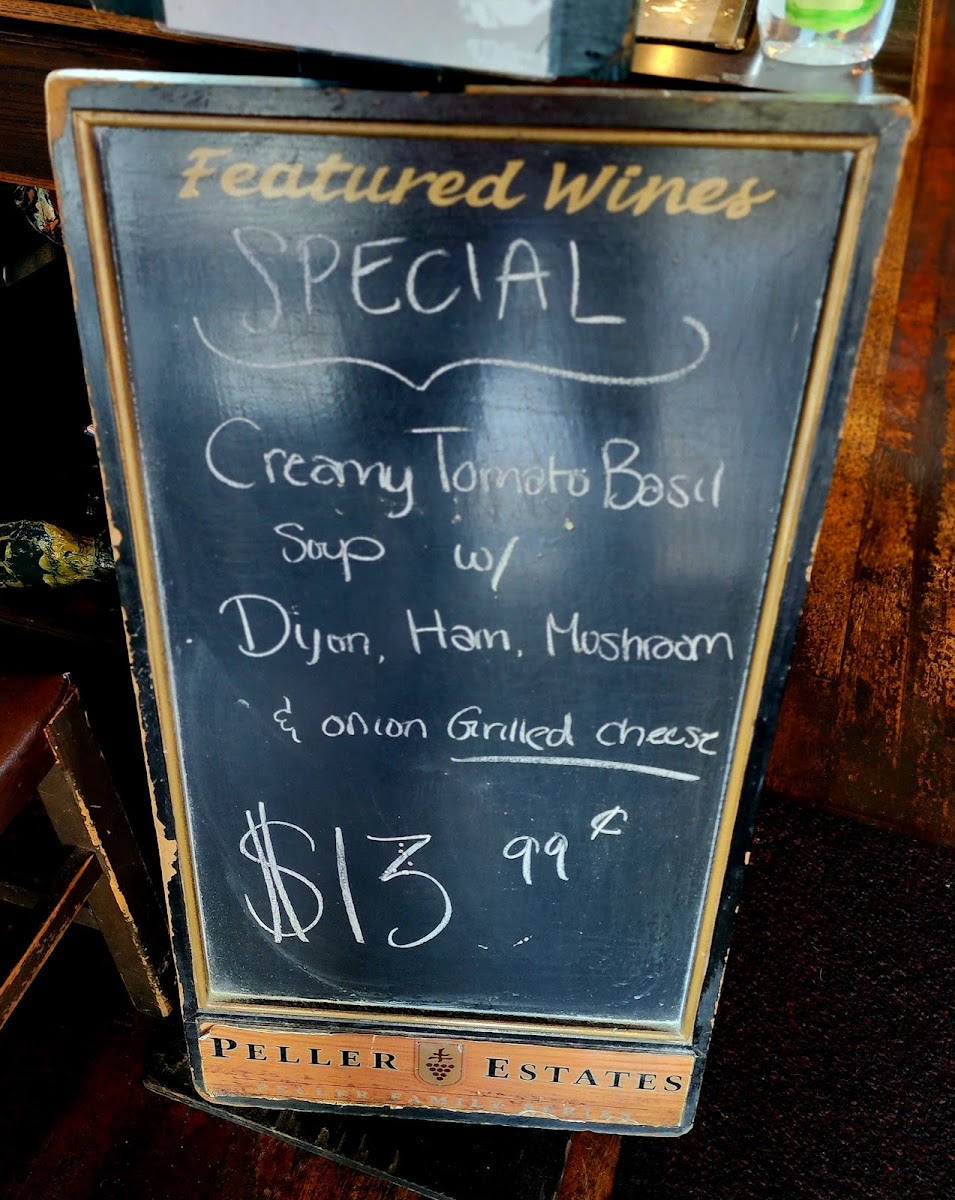 Featured Wines
SPECIAL
Creamy Tomato Basil
Soup w/
Dijon, Ham, Mushroom
& onion Grilled cheese
$13 99¢
PELLER ESTATES
FAMILY SERIES